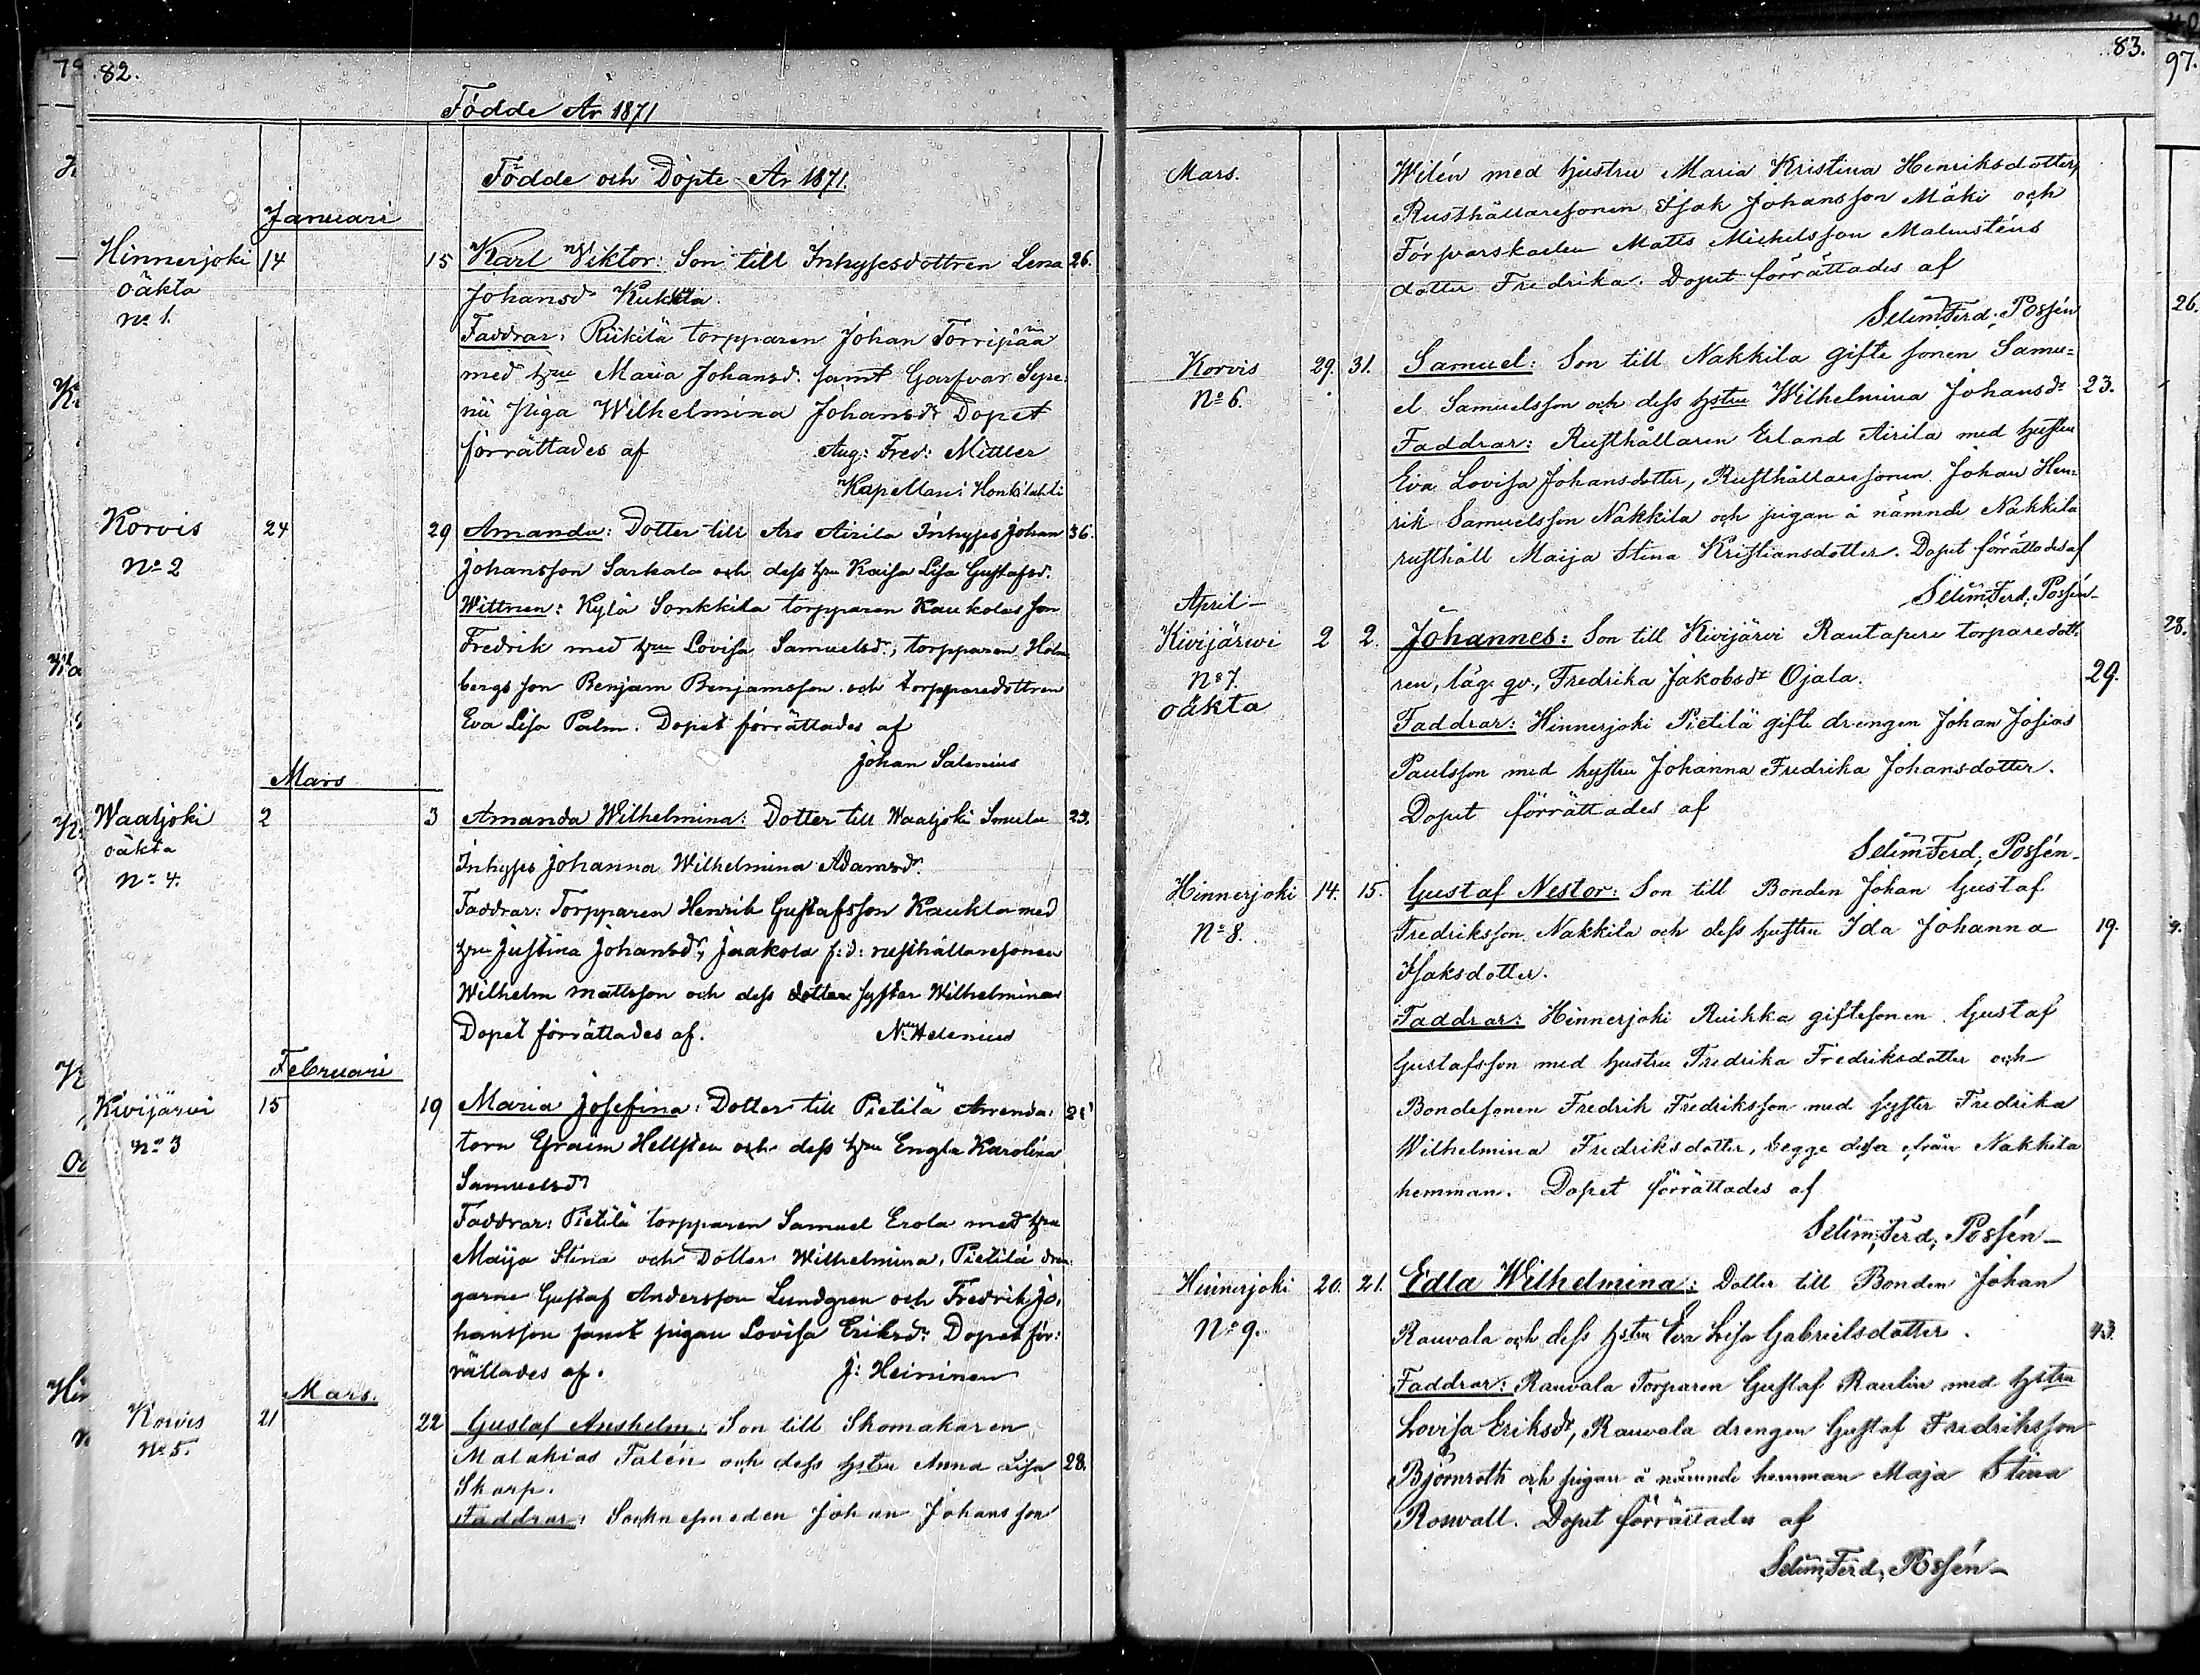 82.
Födde År 1871
Födde och Döpte År 1871.
Januari
Hinnerjoki 14 15 Karl Viktor: Son till Inhyses dottren Lena 26.
oäkta
No 1.
Johansdr Kukkia.
Faddrar: Riikilä torpparen Johan Torripää
med hru Maria Johansd. samt Garfvar Seppe-
nii piga Wilhelmina Johansdr Dopet
förrättades af Aug: Fred: Mittler
Kapellan i Honkilahti
Korvis 24 29 Amanda: Dotter till Aro Airila Inhyses Johan 36.
No 2
Johansson Sarkala och dess hru Kaisa Lisa Gustafsd.
Wittnen: Kylä Sonkkila torpparen Kaukolas son
Fredrik med hru Lovisa Samuelsd., torpparen Holm-
bergs son Benjam Benjamsson och torpparedottren
Eva Lisa Palm. Dopet förrättades af
Johan Salenius
Mars
Waaljoki 2 3 Amanda Wilhelmina: Dotter till Waaljoki Smula 23.
oäkta
No 4.
Inhyses Johanna Wilhelmina Adamsdr.
Faddrar: Torpparen Henrik Gustafsson Kaukla med
hru Justina Johansdr, Jaakola f:d: rusthållaresonen
Wilhelm Mattsson och dess syster Wilhelmina
Dopet förrättades af. N. Helenius
Februari
Kivijärvi 15 19 Maria Josefina: Dotter till Pietilä Arrenda-
No 3
torn Efraim Hellsten och dess hru Engla Karolina
Samuelsdr
Faddrar: Pietilä torpparen Samuel Erola med hru
Maija Stina och Dotter Wilhelmina, Pietilä dren-
garne Gustaf Andersson Lundgren och Fredrik Jo-
hansson samt pigan Lovisa Eriksdr. Dopet för-
rättades af. J: Heininen
Mars.
Korvis 21 22 Gustaf Anshelm: Son till Skomakaren
No 5.
Malakias Talén och dess hstru Anna Lisa 28.
Skarp.
Faddrar: Socknesmeden Johan Johansson
83.
Mars.
Wilén med hustru Maria Kristina Henriksdotter,
Rusthållaresonen Isak Johansson Mäki och
Försvarskarlen Matts Michelsson Malmsténs
dotter Fredrika. Dopet förrättades af
Selim Ferd. Possén
Korvis 29. 31. Samuel: Son till Nakkila gifte sonen Samu-
No 6.
el Samuelsson och dess hstru Wilhelmina Johansdr 23.
Faddrar: Rusthållaren Erland Airila med hustru
Eva Lovisa Johansdotter, Rusthållaresonen Johan Hen-
rik Samuelsson Nakkila och pigan å nämnde Nakkila
rusthåll Maija Stina Kristiansdotter. Dopet förättades af
Selim Ferd. Possén
April
Kivijärwi 2 2. Johannes: Son till Kivijärvi Rautapere torparedott-
No 7.
oäkta
ren, läg. qv., Fredrika Jakobsdr Ojala. 29.
Faddrar: Hinnerjoki Pietilä gifte drengen Johan Josias
Paulsson med hustru Johanna Fredrika Johansdotter.
Dopet förrättades af
Selim Ferd. Possén
Hinnerjoki 14. 15. Gustaf Nestor: Son till Bonden Johan Gustaf
No 8.
Fredriksson Nakkila och dess hustru Ida Johanna 19.
Isaksdotter.
Faddrar: Hinnerjoki Ruikka giftesonen Gustaf
Gustafsson med hustru Fredrika Fredriksdotter och
Bondesonen Fredrik Fredriksson med syster Fredrika
Wilhelmina Fredriksdotter, begge dessa från Nakkila
hemman. Dopet förrättades af
Selim Ferd. Possén
Hinnerjoki 20. 21. Edla Wilhelmina: Dotter till Bonden Johan
No 9.
Rauvala och dess hstru Eva Lisa Gabrielsdotter. 43.
Faddrar: Rauvala Torparen Gustaf Raulin med hstru
Lovisa Eriksdr, Rauvala drengen Gustaf Fredriksson
Björnroth och pigan å nämnde hemman Maja Stina
Roswall. Dopet förrättades af
Selim Ferd. Possén
97.
26.
28.